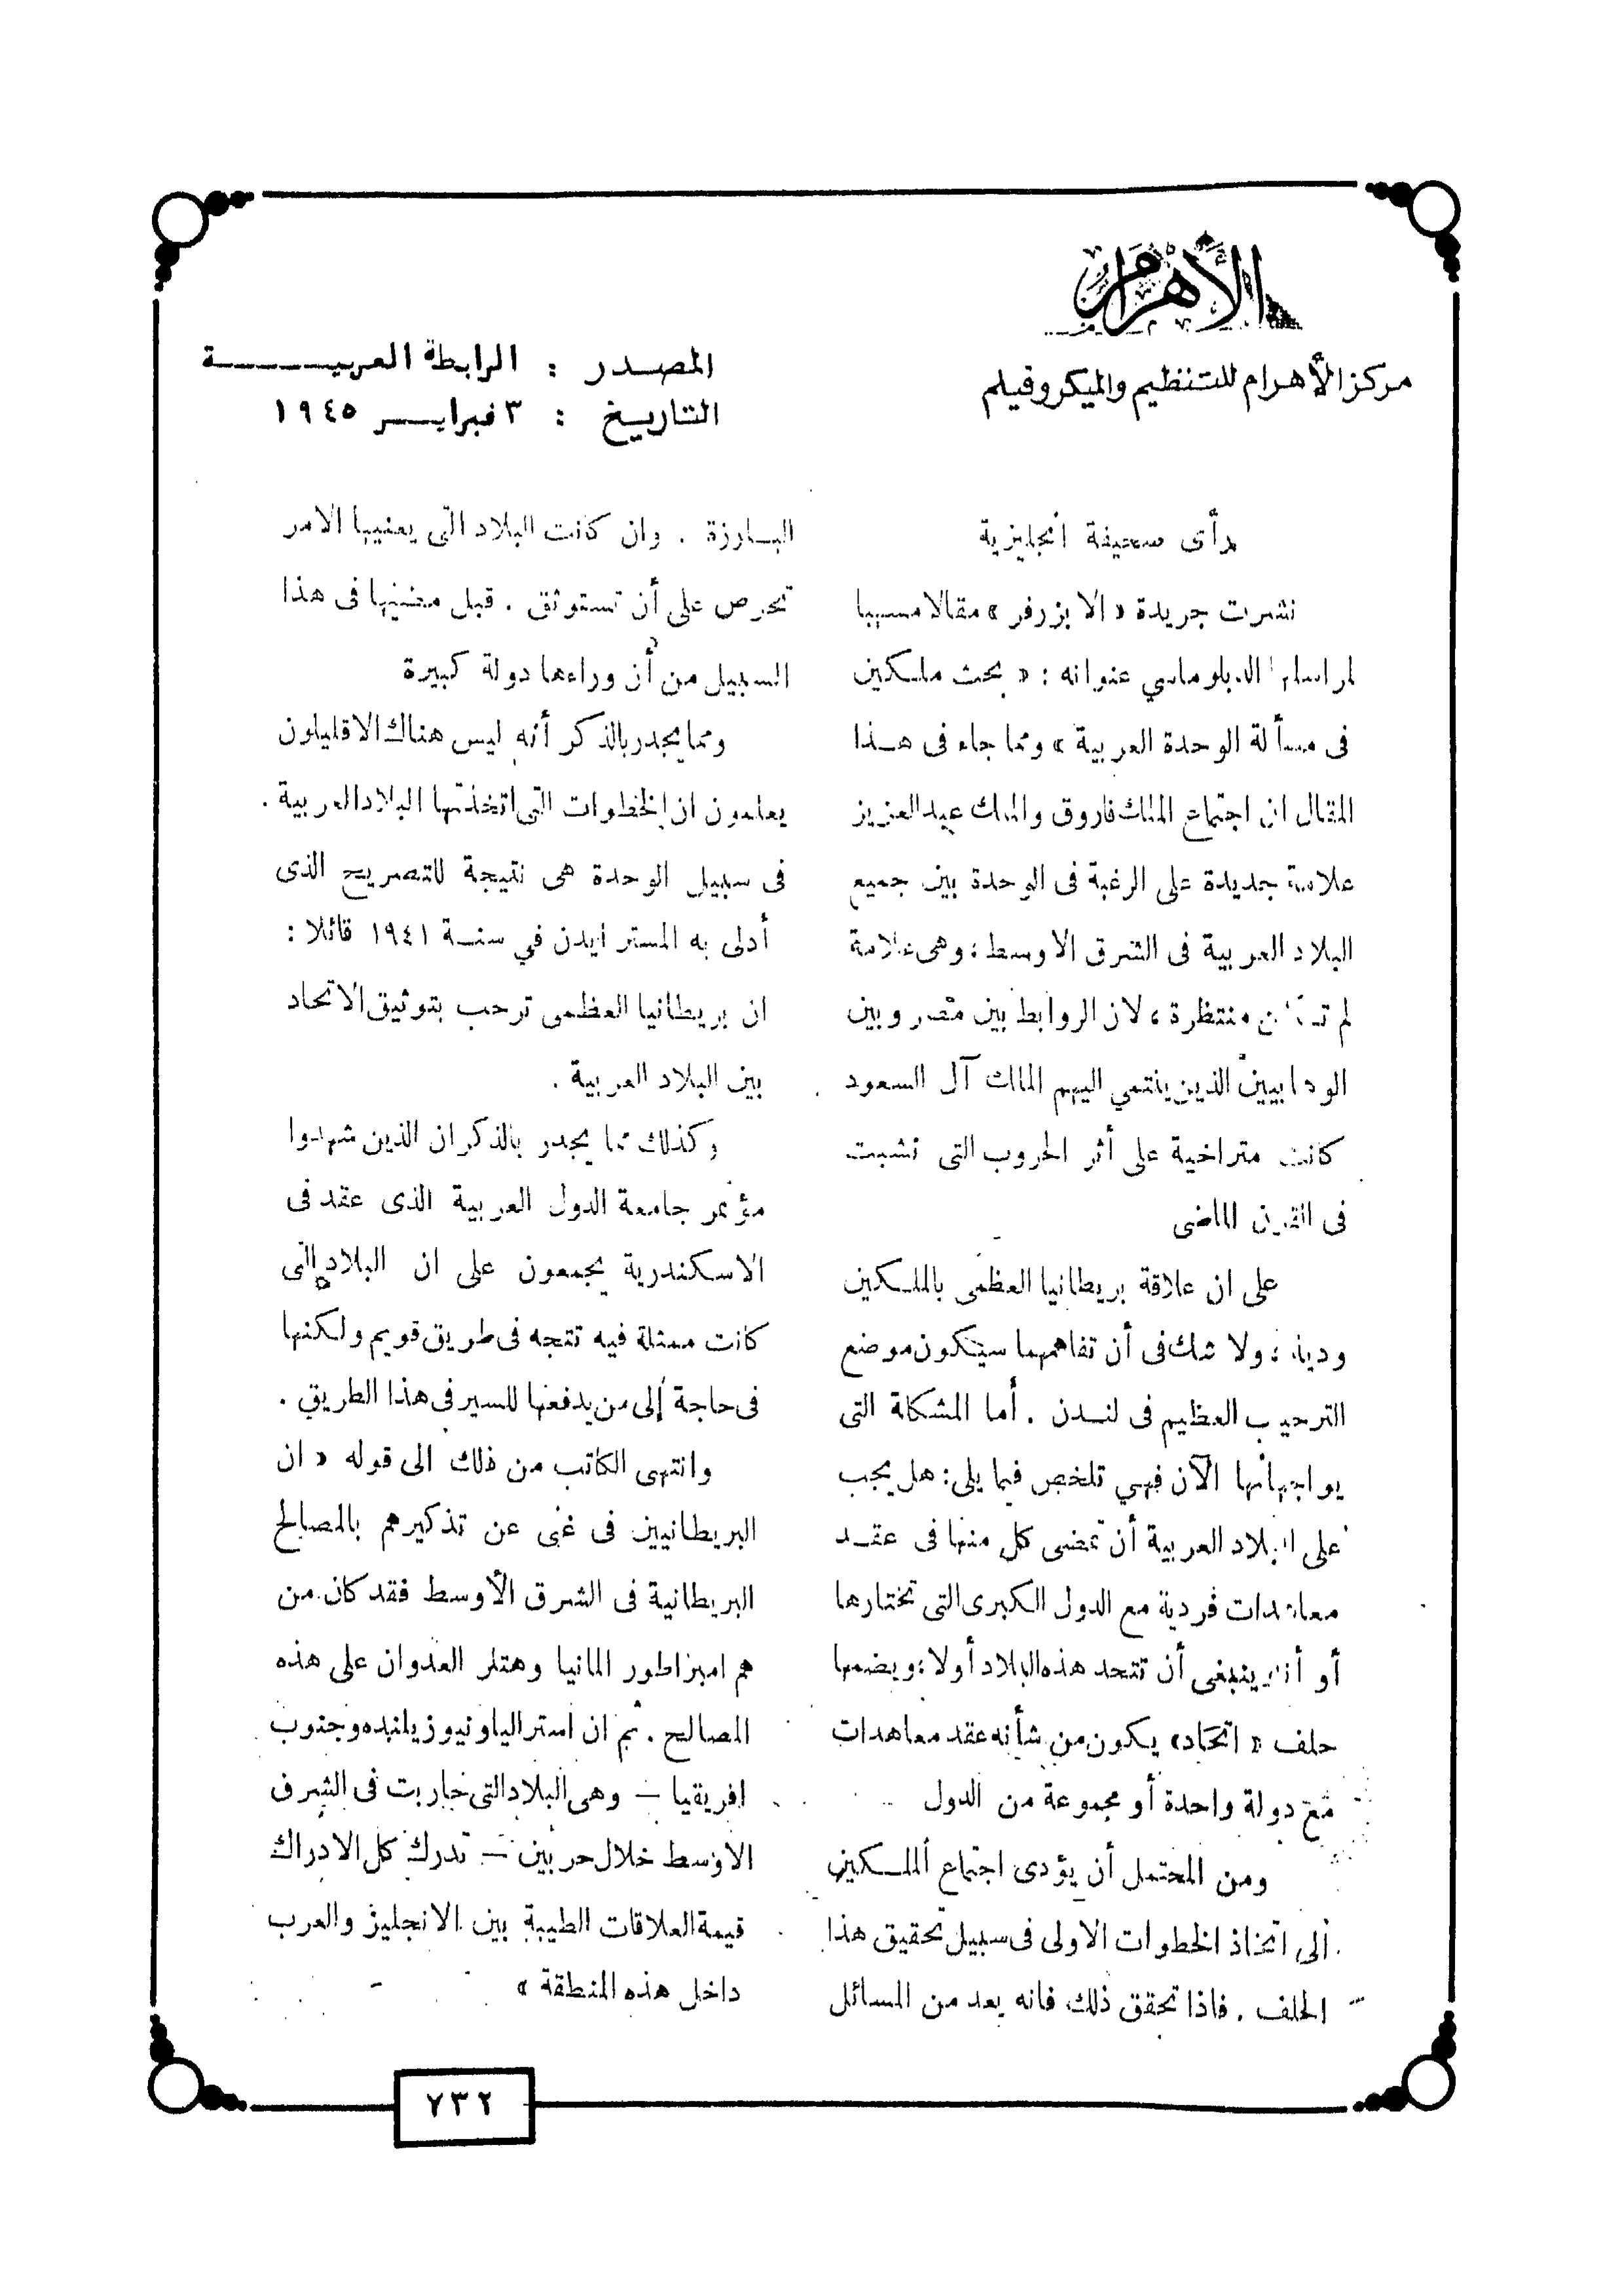 الأهرام
مركز الأهرام للتنظيم والميكروفيلم
المصدر : الرابطة العربية
التاريخ : ٣ فبراير ١٩٤٥
رأى صحيفة انجليزية
نشرت جريدة « الابزرفر » مقالا مسهبا
لمراسلها الدبلوماسي عنوانه : « بحث ملكين
فى مسألة الوحدة العربية » ومما جاء فى هذا
المقال ان اجتماع الملك فاروق والملك عبدالعزيز
علامة جديدة على الرغبة فى الوحدة بين جميع
البلاد العربية فى الشرق الاوسط ؛ وهى علامة
لم تكن منتظرة ، لان الروابط بين مصر وبين
الوهابيين الذين ينتمي اليهم الملك آل السعود
كانت متراخية على أثر الحروب التى نشبت
فى القرن الماضى
على ان علاقة بريطانيا العظمى بالملكين
ودية ؛ ولا شك فى أن تفاهمهما سيكون موضع
الترحيب العظيم فى لندن . أما المشكلة التى
يواجهانها الآن فهي تلخص فيما يلى : هل يجب
على البلاد العربية أن تمضى كل منها فى عقد
معاهدات فردية مع الدول الكبرى التى تختارها
أو أنه ينبغى أن تتحد هذه البلاد أولا ؛ ويضمها
حلف « اتحاد» يكون من شأنه عقد معاهدات
مع دولة واحدة أو مجموعة من الدول
ومن المحتمل أن يؤدى اجتماع الملكين
الى اتخاذ الخطوات الاولى فى سبيل تحقيق هذا
الحلف . فاذا تحقق ذلك فانه يعد من المسائل
البارزة . وان كانت البلاد التى يعنيها الامر
تحرص على أن تستوثق . قبل مضيها فى هذا
السبيل من أن وراءها دولة كبيرة
ومما يجدر بالذكر أنه ليس هناك الا قليلون
يعلمون ان الخطوات التى اتخذتها البلاد العربية .
فى سبيل الوحدة هى نتيجة للتصريح الذى
أدلى به المستر ايدن في سنة ١٩٤١ قائلا :
ان بريطانيا العظمى ترحب بتوثيق الاتحاد
بين البلاد العربية .
وكذلك مما يجدر بالذكر ان الذين شهدوا
مؤتمر جامعة الدول العربية الذى عقد فى
الاسكندرية يجمعون على ان البلاد التى
كانت ممثلة فيه تتجه فى طريق قويم ولكنها
فى حاجة إلى من يدفعها للسير فى هذا الطريق .
وانتهى الكاتب من ذلك الى قوله « ان
البريطانيين فى غنى عن تذكيرهم بالمصالح
البريطانية فى الشرق الأوسط فقد كان من
هم امبراطور المانيا وهتلر العدوان على هذه
المصالح . ثم ان استراليا ونيوزيلنده وجنوب
افريقيا — وهى البلاد التى حاربت فى الشرق
الاوسط خلال حربين — تدرك كل الادراك
قيمة العلاقات الطيبة بين الانجليز والعرب
داخل هذه المنطقة »
٧٣٢